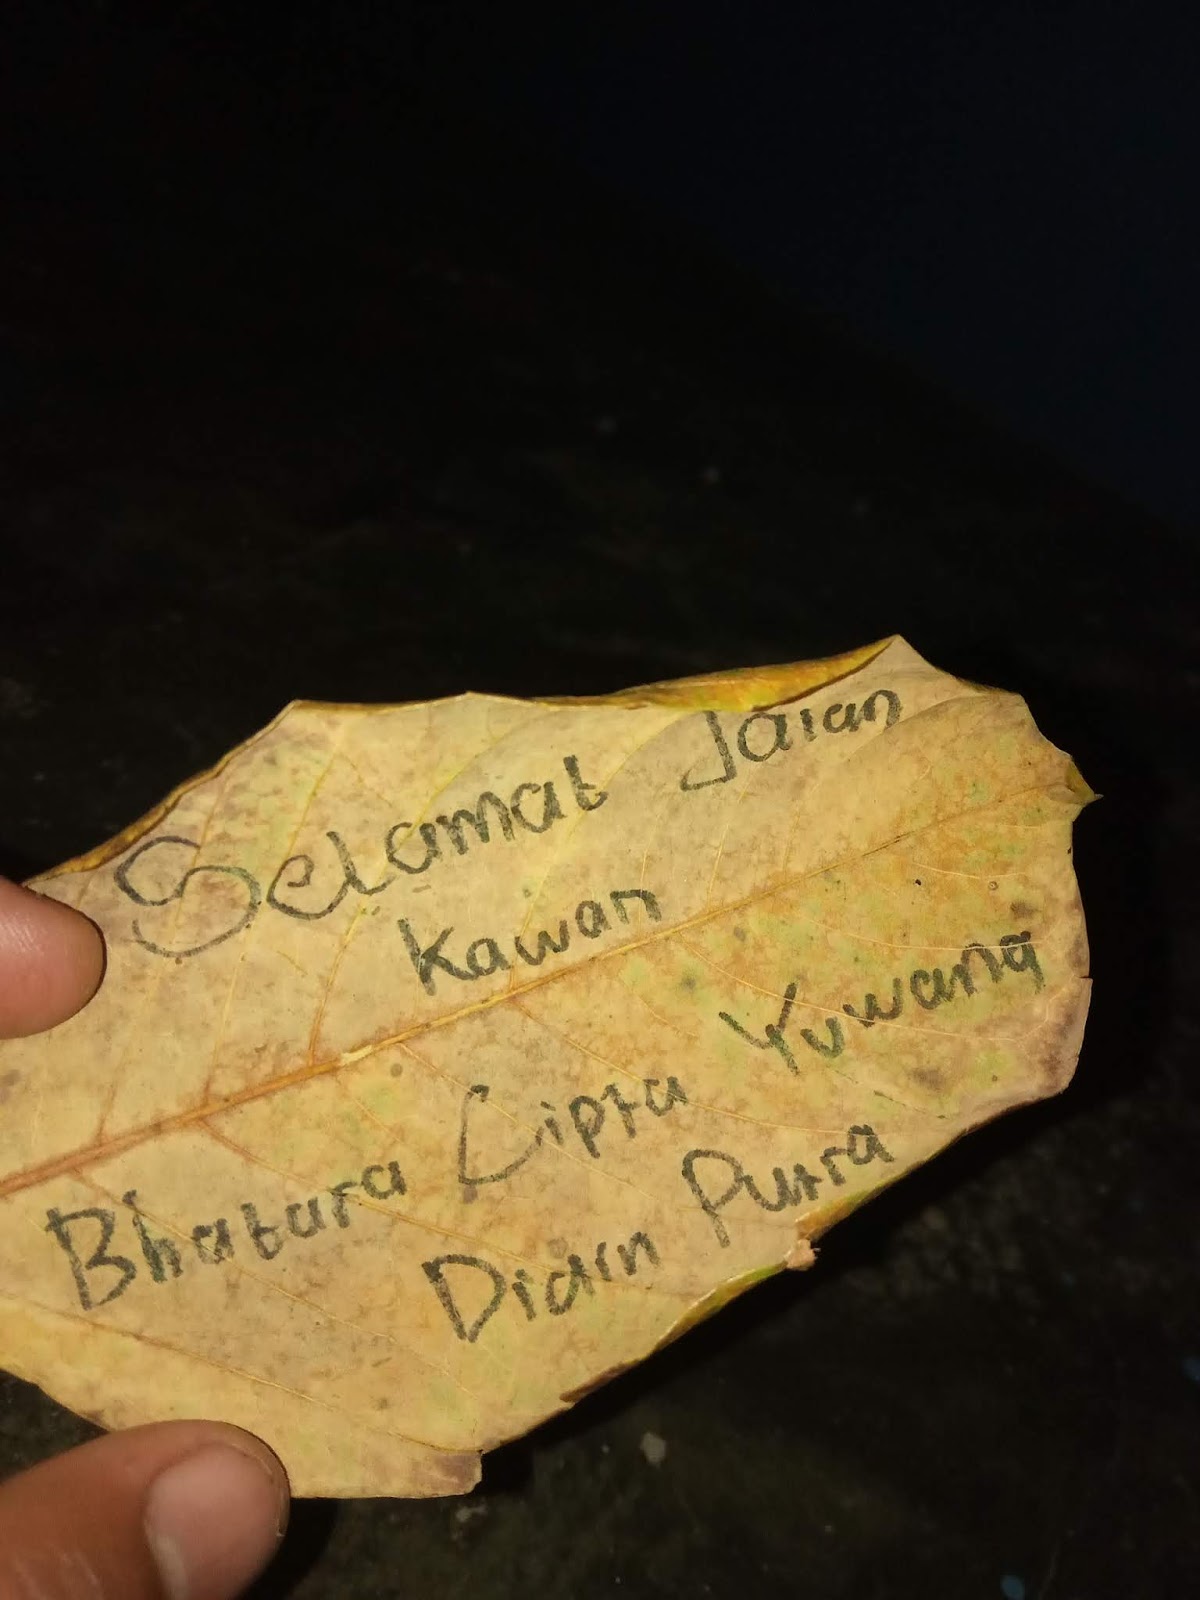 Selamat Jalan
Kawan
Bhatara Cipta Yuwang
Didin Putra